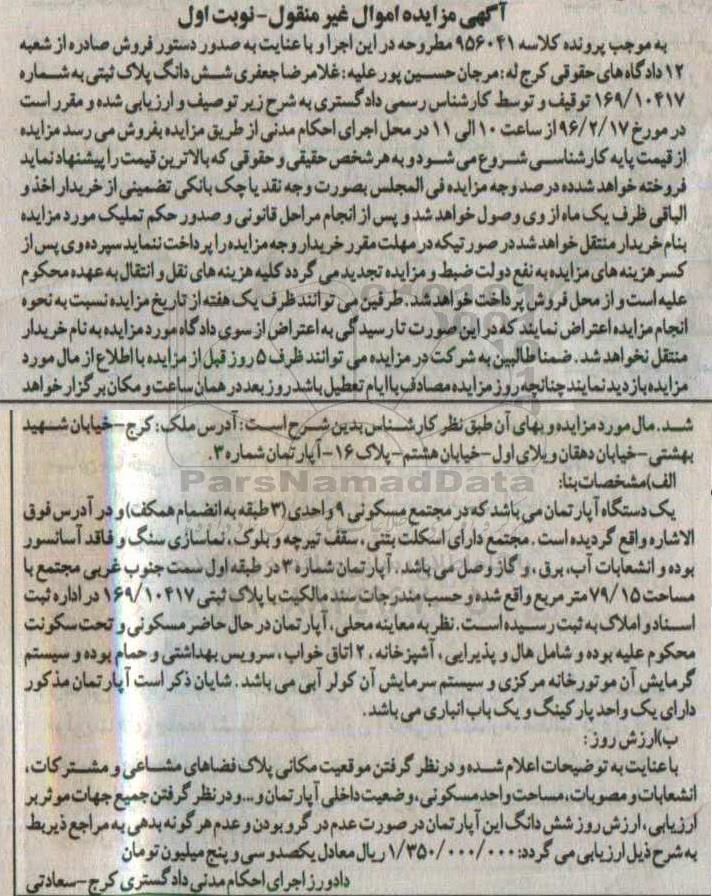 آگهی مزایده اموال غیر منقول - نوبت اول
به موجب پرونده کلاسه ۹۵۶۰۴۱ مطروحه در این اجرا و با عنایت به صدور دستور فروش صادره از شعبه
۱۲ دادگاه های حقوقی کرج له: مرجان حسین پور علیه: غلامرضا جعفری شش دانگ پلاک ثبتی به شماره
۱۶۹/۱۰۴۱۷ توقیف و توسط کارشناس رسمی دادگستری به شرح زیر توصیف و ارزیابی شده و مقرر است
در مورخ ۹۶/۲/۱۷ از ساعت ۱۰ الی ۱۱ در محل اجرای احکام مدنی از طریق مزایده بفروش می رسد مزایده
از قیمت پایه کارشناسی شروع می شود و به هر شخص حقیقی و حقوقی که بالاترین قیمت را پیشنهاد نماید
فروخته خواهد شد ده درصد وجه مزایده فی المجلس بصورت وجه نقد یا چک بانکی تضمینی از خریدار اخذ و
الباقی ظرف یک ماه از وی وصول خواهد شد و پس از انجام مراحل قانونی و صدور حکم تملیک مورد مزایده
بنام خریدار منتقل خواهد شد در صورتیکه در مهلت مقرر خریدار وجه مزایده را پرداخت ننماید سپرده وی پس از
کسر هزینه های مزایده به نفع دولت ضبط و مزایده تجدید می گردد کلیه هزینه های نقل و انتقال به عهده محکوم
علیه است و از محل فروش پرداخت خواهد شد. طرفین می توانند ظرف یک هفته از تاریخ مزایده نسبت به نحوه
انجام مزایده اعتراض نمایند که در این صورت تا رسیدگی به اعتراض از سوی دادگاه مورد مزایده به نام خریدار
منتقل نخواهد شد. ضمنا طالبین به شرکت در مزایده می توانند ظرف ۵ روز قبل از مزایده با اطلاع از مال مورد
مزایده بازدید نمایند چنانچه روز مزایده مصادف با ایام تعطیل باشد روز بعد در همان ساعت و مکان برگزار خواهد
شد. مال مورد مزایده و بهای آن طبق نظر کارشناس بدین شرح است: آدرس ملک: کرج - خیابان شهید
بهشتی - خیابان دهقان ویلای اول - خیابان هشتم - پلاک ۱۶ - آپارتمان شماره ۳.
ParsNamadData
الف) مشخصات بنا:
یک دستگاه آپارتمان می باشد که در مجتمع مسکونی ۹ واحدی (۳ طبقه به انضمام همکف) و در آدرس فوق
الاشاره واقع گردیده است. مجتمع دارای اسکلت بتنی، سقف تیرچه و بلوک، نماسازی سنگ و فاقد آسانسور
بوده و انشعابات آب، برق، و گاز وصل می باشد. آپارتمان شماره ۳ در طبقه اول سمت جنوب غربی مجتمع با
مساحت ۷۹/۱۵ متر مربع واقع شده و حسب مندرجات سند مالکیت با پلاک ثبتی ۱۶۹/۱۰۴۱۷ در اداره ثبت
اسناد و املاک به ثبت رسیده است. نظر به معاینه محلی، آپارتمان در حال حاضر مسکونی و تحت سکونت
محکوم علیه بوده و شامل هال و پذیرایی، آشپزخانه، ۲ اتاق خواب، سرویس بهداشتی و حمام بوده و سیستم
گرمایش آن موتورخانه مرکزی و سیستم سرمایش آن کولر آبی می باشد. شایان ذکر است آپارتمان مذکور
دارای یک واحد پارکینگ و یک باب انباری می باشد.
ب) ارزش روز:
با عنایت به توضیحات اعلام شده و در نظر گرفتن موقعیت مکانی پلاک فضاهای مشاعی و مشترکات،
انشعابات و مصوبات، مساحت واحد مسکونی، وضعیت داخلی آپارتمان و... و در نظر گرفتن جمیع جهات موثر بر
ارزیابی، ارزش روز شش دانگ این آپارتمان در صورت عدم در گرو بودن و عدم هر گونه بدهی به مراجع ذیربط
به شرح ذیل ارزیابی می گردد: ۱/۳۵۰/۰۰۰/۰۰۰ ریال معادل یکصد و سی و پنج میلیون تومان
دادورز اجرای احکام مدنی دادگستری کرج - سعادتی